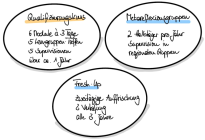 Qualifizierungskurs
6 Module à 3 Tage
5 Lerngruppen treffen
3 Supervisionen
über ca. 1 Jahr
Metareflexionsgruppen
2 Halbtage pro Jahr
Supervision in
regionalen Gruppen
Fresh Up
zweitägige Auffrischung
& Vertiefung
alle 3 Jahre